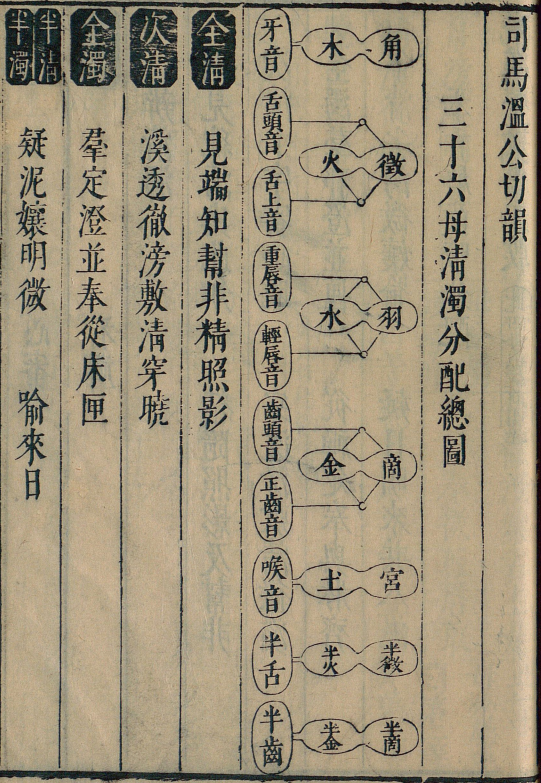 司馬溫公切韻
三十六母清濁分配總圖
角 木 牙音
徵 火 舌頭音 舌上音
羽 水 重唇音 輕唇音
啇 金 齒頭音 正齒音
宮 土 喉音
半徵 半火 半舌
半啇 半金 半齒
全清 見端知幫非精照影
次清 溪透徹滂敷清穿曉
全濁 羣定澄並奉從床匣
半清 半濁 疑泥孃明微 喻來日